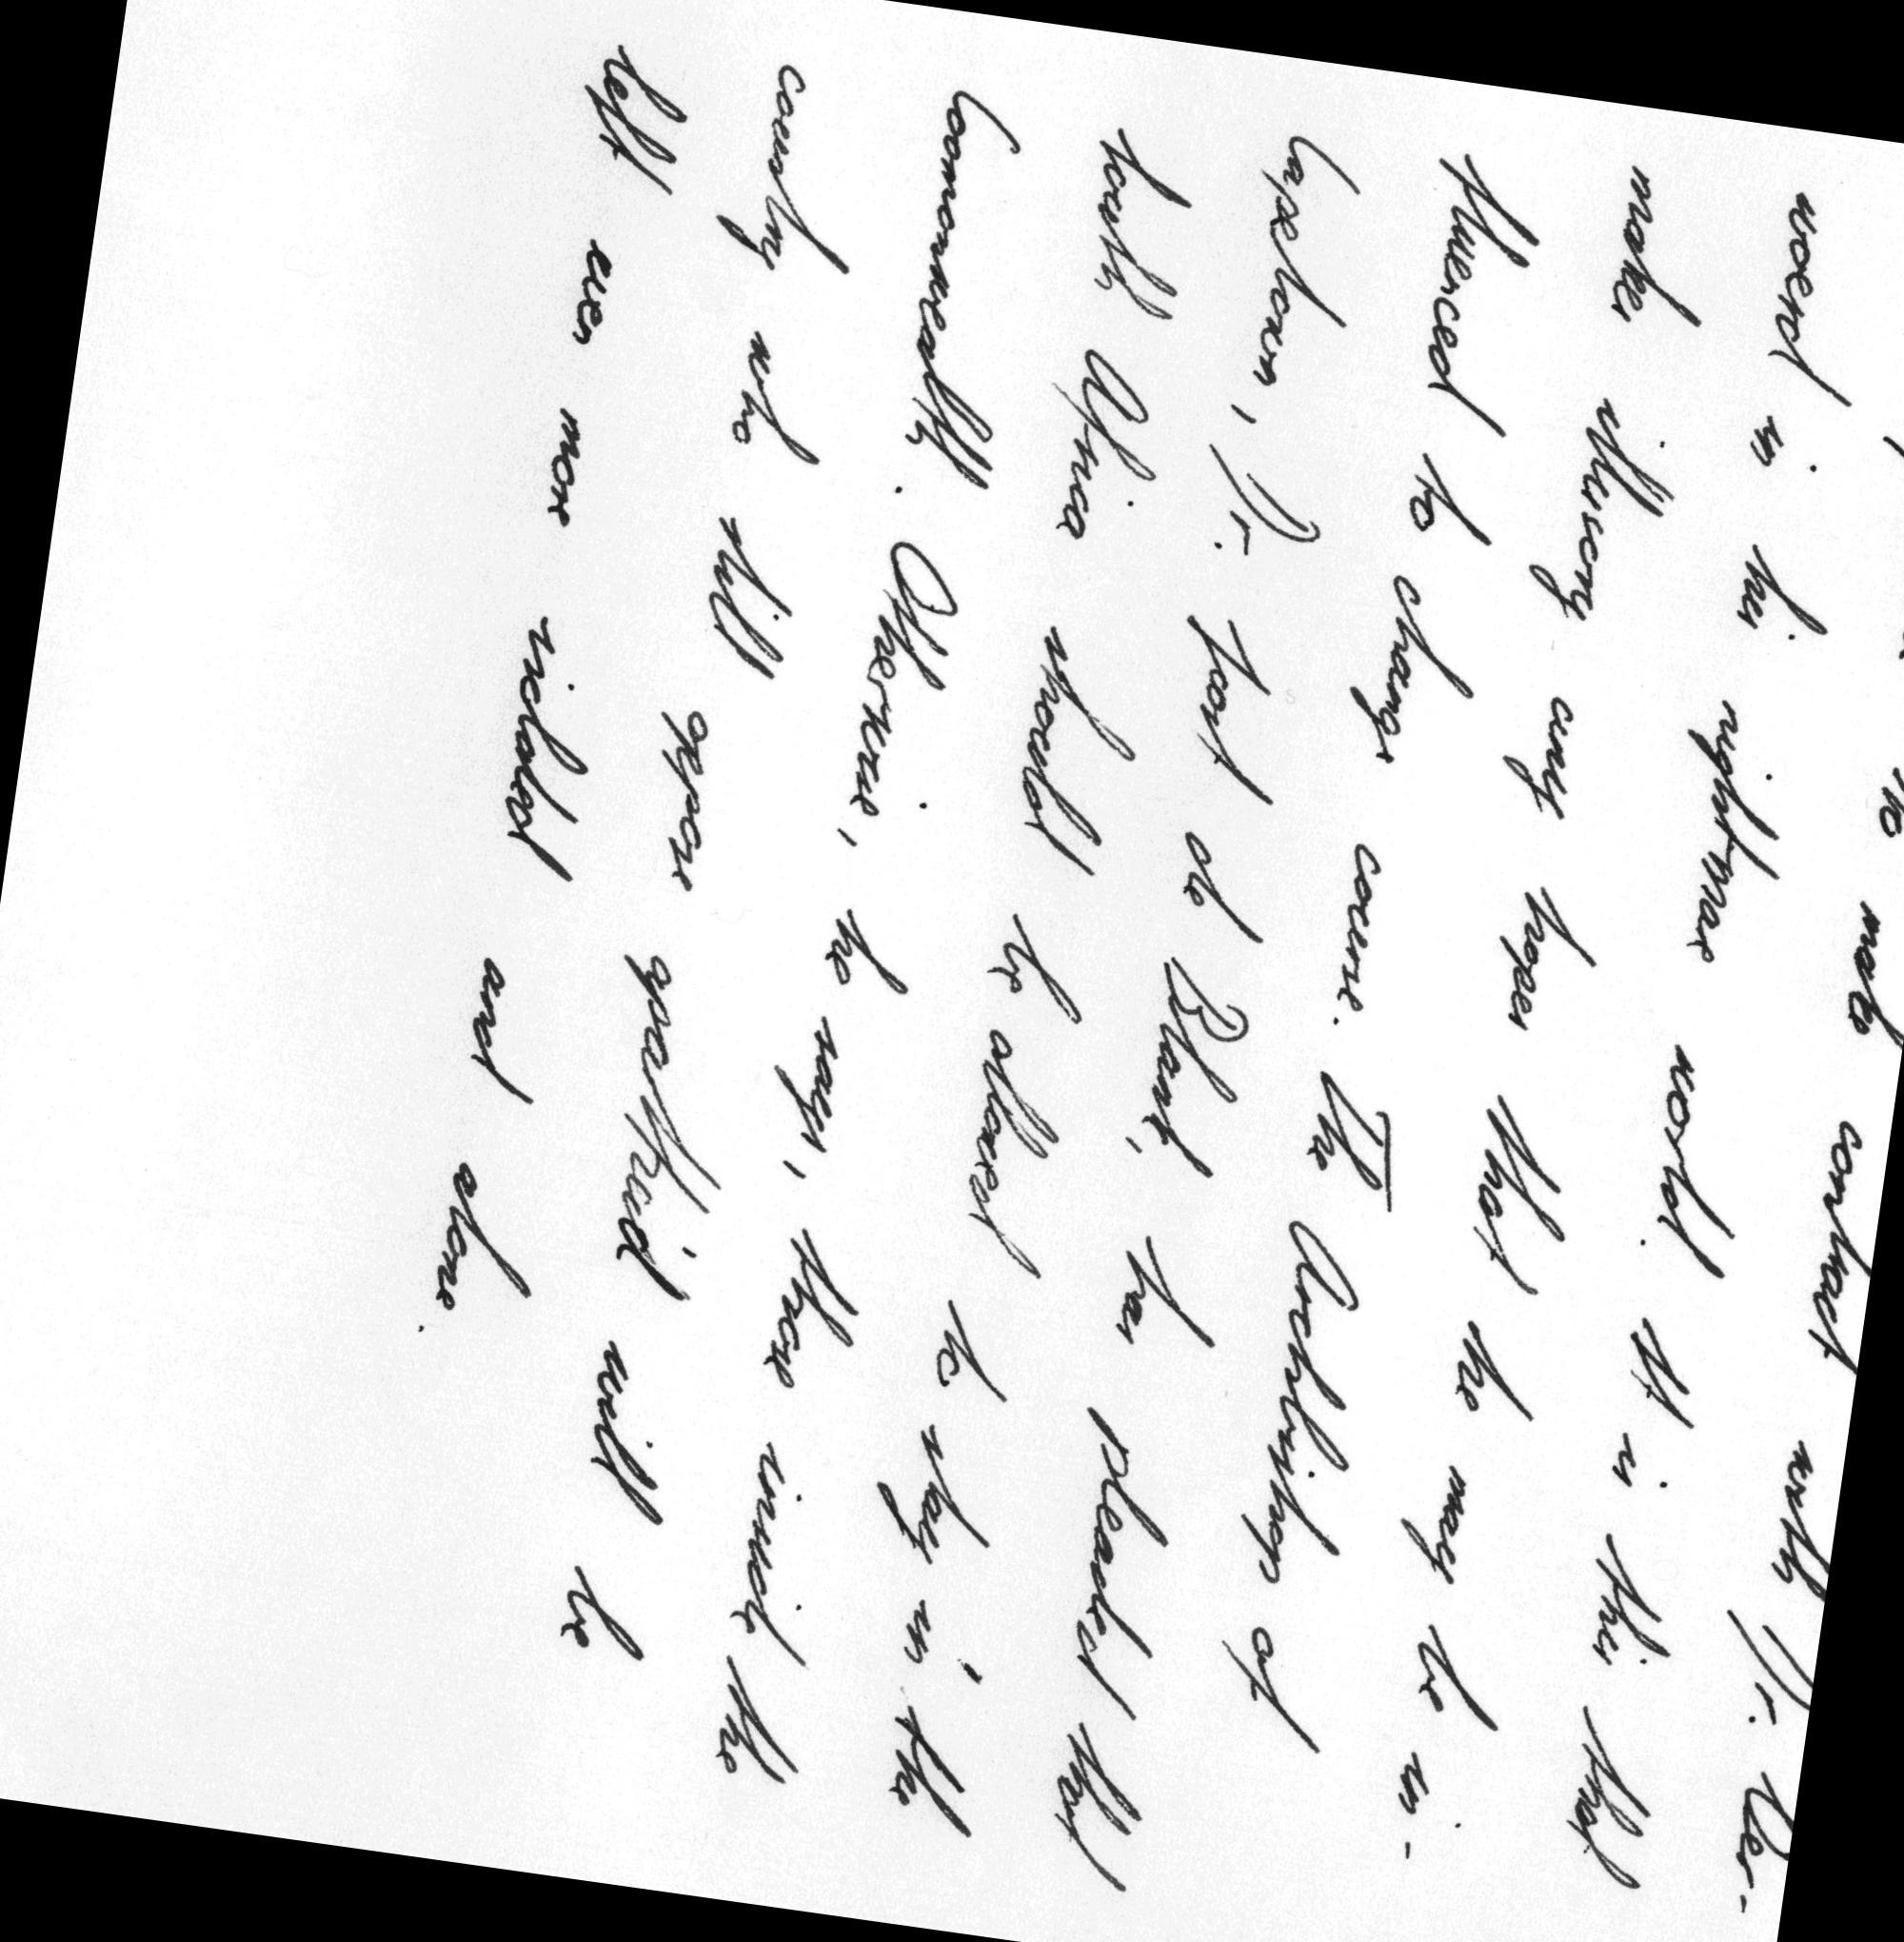 to make contact with Dr. Ver-
woerd in his nightmare world. It is this that
makes illusory any hopes that he may be in-
fluenced to change course. The Archbishop of
Capetown, Dr. Joost de Blank, has pleaded that
South Africa should be allowed to stay in the
Commonwealth. Otherwise, he says, those inside the
country who still oppose apartheid will be
left even more isolated and alone.